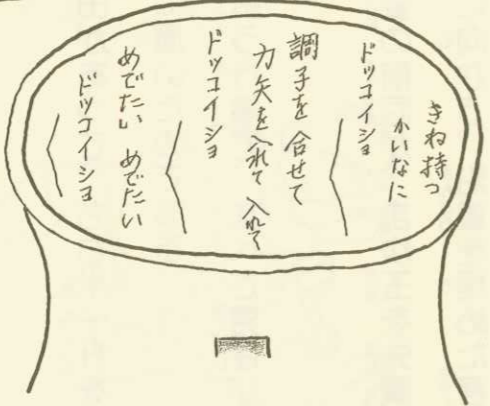 きね持つ
かいなに
ドッコイショ
調子を合せて
力矢を入れて 入れて
ドッコイショ
めでたい めでたい
ドッコイショ